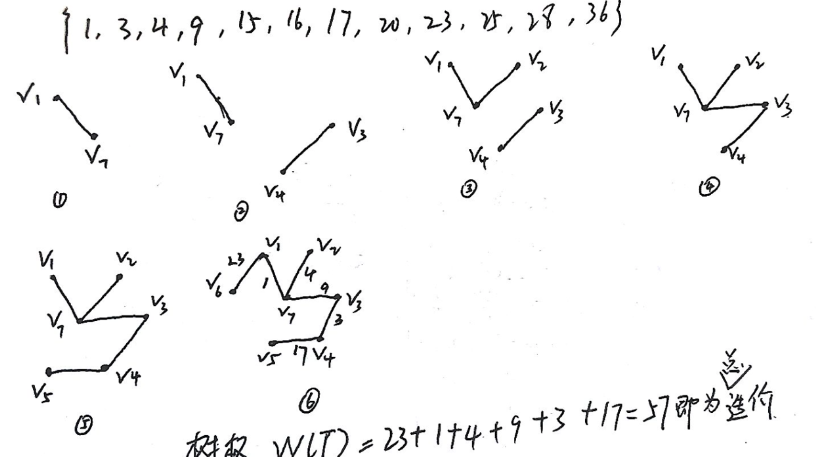 {1, 3, 4, 9, 15, 16, 17, 20, 23, 25, 28, 36}
V1
V7
①
V1
V7
V3
V4
②
V1
V2
V7
V3
V4
③
V1
V2
V7
V3
V4
④
V1
V2
V7
V3
V5
V4
⑤
23
V1
V2
V6
1
4
9
V7
V3
3
V5
17
V4
⑥
总
树权 W(T) = 23+1+4+9+3+17=57即为造价